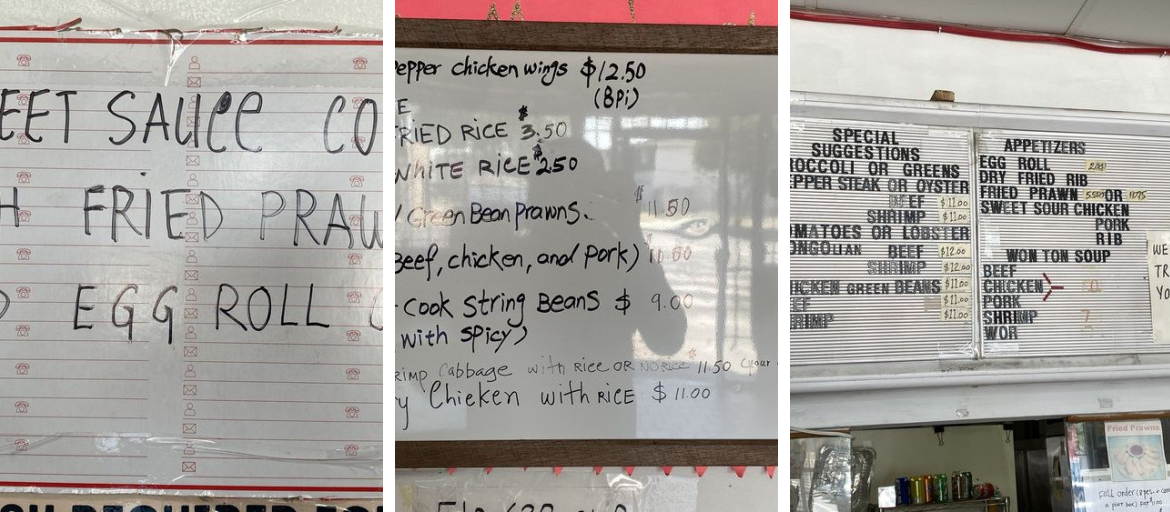 EET SAUCE CO
H FRIED PRAW
EGG ROLL
pepper chicken wings $12.50
(8pi)
E
FRIED RICE $3.50
WHITE RICE $2.50
Green Bean prawns. $11.50
Beef, chicken, and pork) 11.50
-cook string Beans $ 9.00
with spicy)
RIMP Cabbage with rice OR NO RICE 11.50 (your
y Chicken with RICE $11.00
SPECIAL
SUGGESTIONS
ROCCOLI OR GREENS
EPPER STEAK OR OYSTER
BEEF $11.00
SHRIMP $11.00
MATOES OR LOBSTER
ONGOLIAN BEEF $12.00
SHRIMP $12.00
HICKEN GREEN BEANS $11.00
EF $11.00
RIMP $11.00
APPETIZERS
EGG ROLL
DRY FRIED RIB
FRIED PRAWN OR
SWEET SOUR CHICKEN
PORK
RIB
WON TON SOUP
BEEF
CHICKEN
PORK
SHRIMP
WOR
WE
TR
YO
Fried Prawns